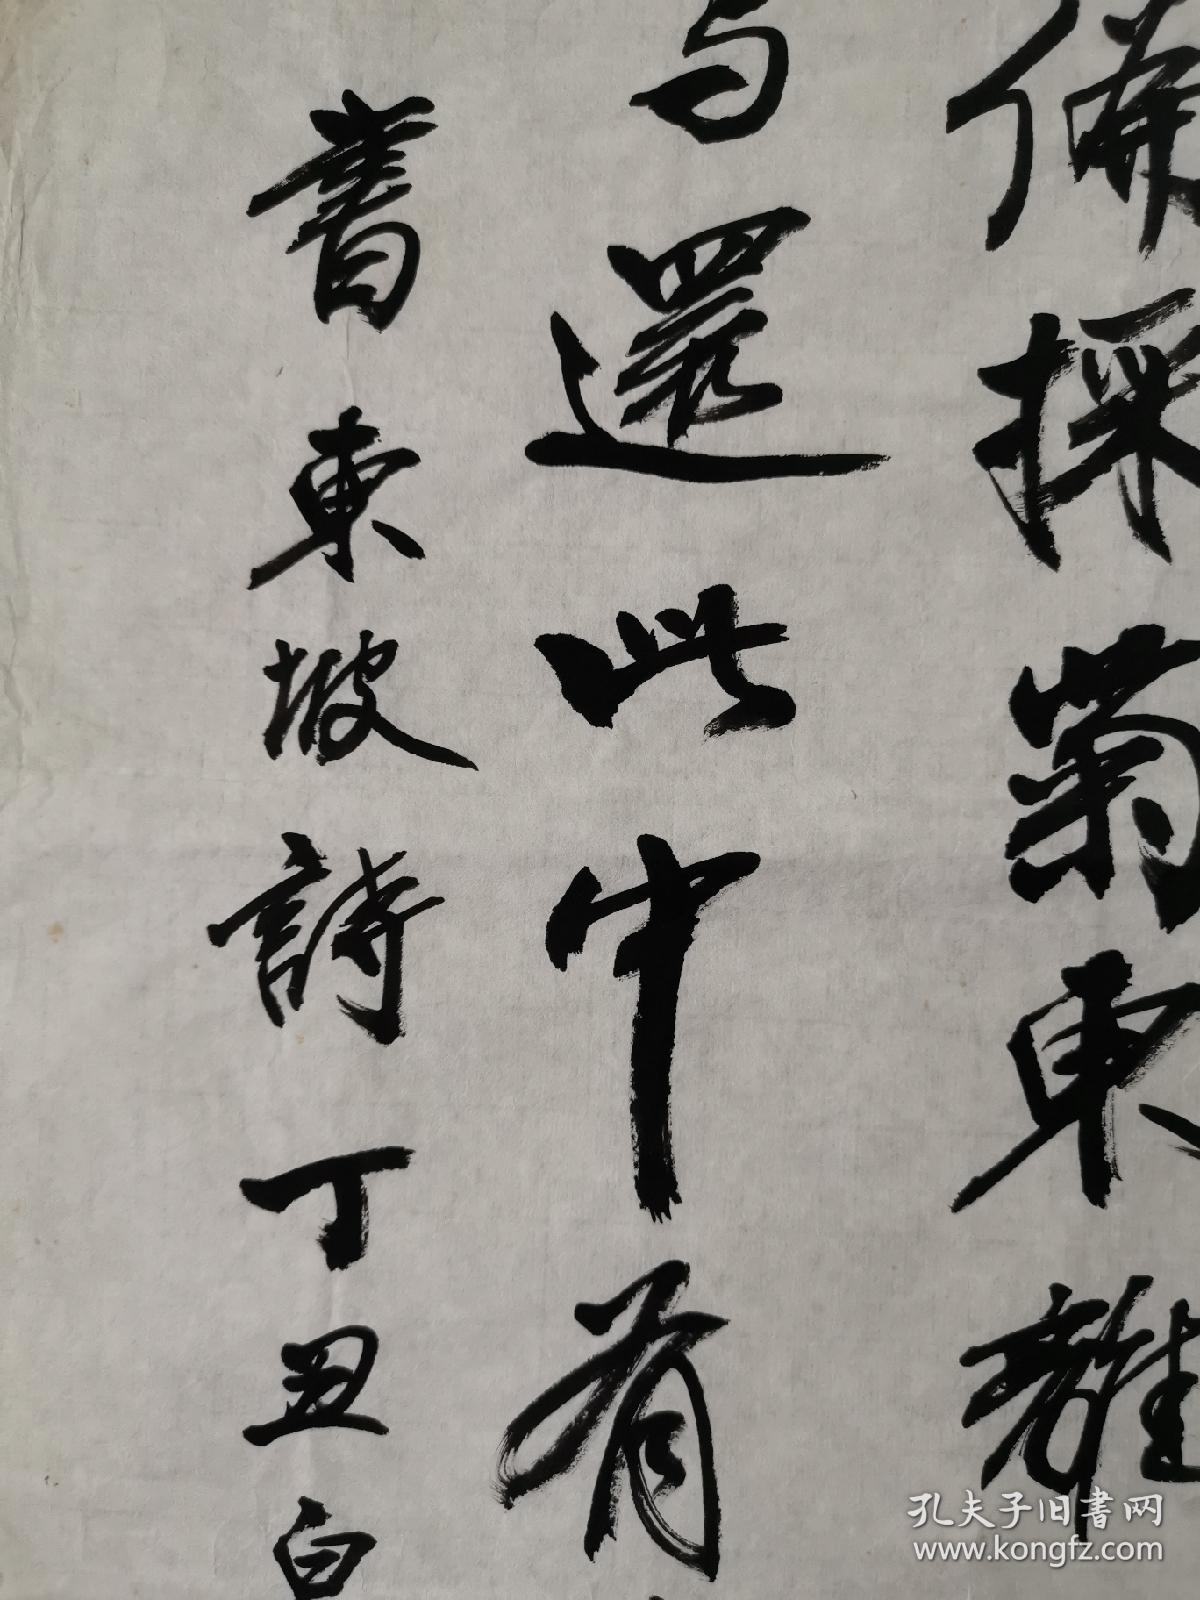 偏採菊東離
与還此中有
書東坡詩丁丑白
孔夫子旧書网
www.kongfz.com